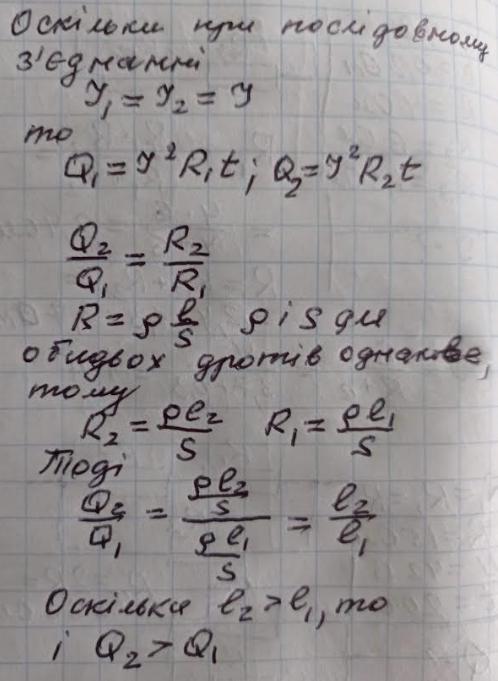 Оскільки при послідовному
з'єднанні
I₁ = I₂ = I
то
Q₁ = I²R₁t; Q₂ = I²R₂t
Q₂/Q₁ = R₂/R₁
R = ρ l/S ρ і S для
обидвох дротів однакове,
тому
R₂ = ρl₂/S R₁ = ρl₁/S
Тоді
Q₂/Q₁ = (ρl₂/S)/(ρl₁/S) = l₂/l₁
Оскільки l₂ > l₁, то
і Q₂ > Q₁